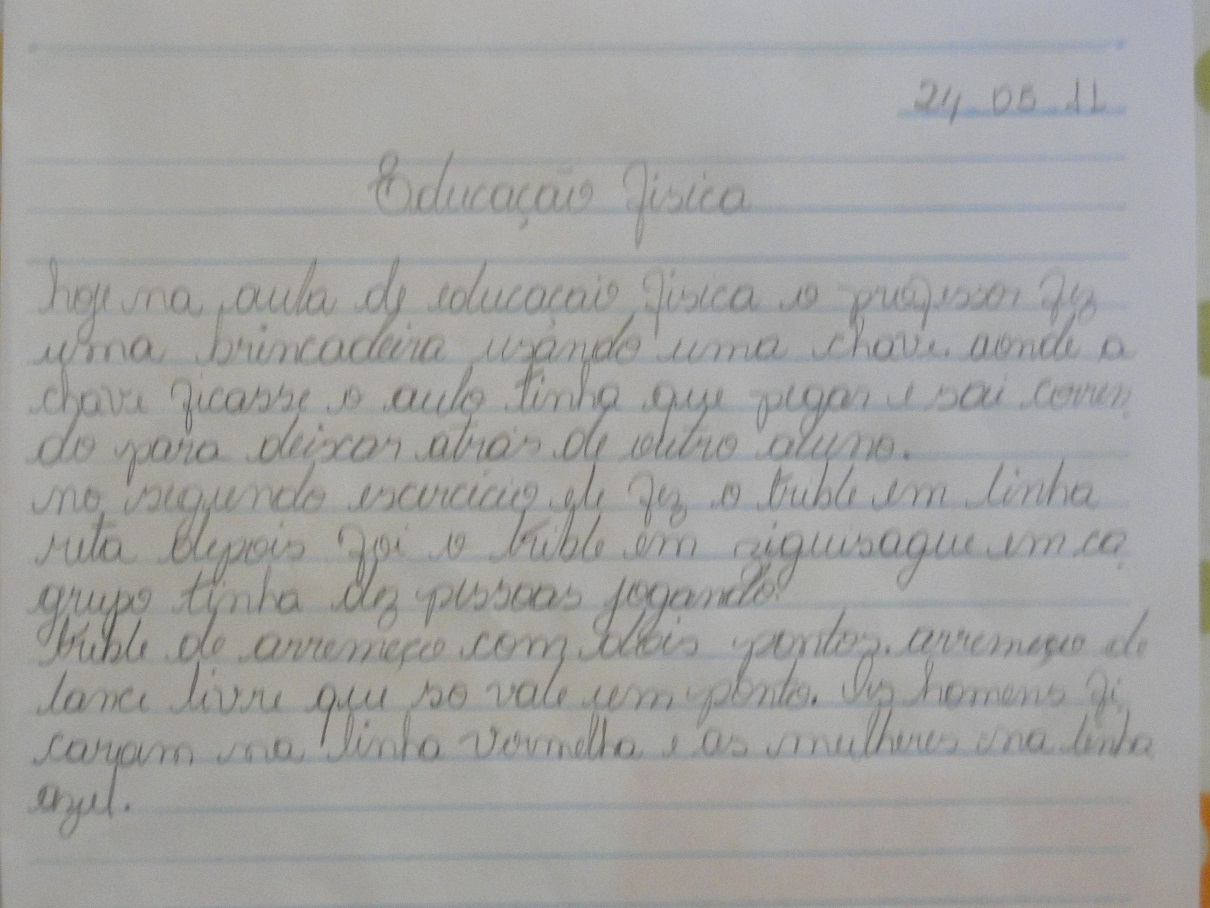 24 05 11
Educação fisica
hoje na aula de educação fisica o professor fez
uma brincadeira usando uma chave. aonde a
chave ficasse o aulo tinha que pegar e sai corren
do para deixar atrás de outro aluno.
no segundo escercicio ele fez o trible em linha
reta depois foi o trible em ziguisague em ca
grupo tinha dez pessoas jogando.
trible de arremeço com dois pontos. arremeço de
lance livre que so vale um ponto. Os homens fi
caram na linha vermelha e as mulheres na linha
azul.